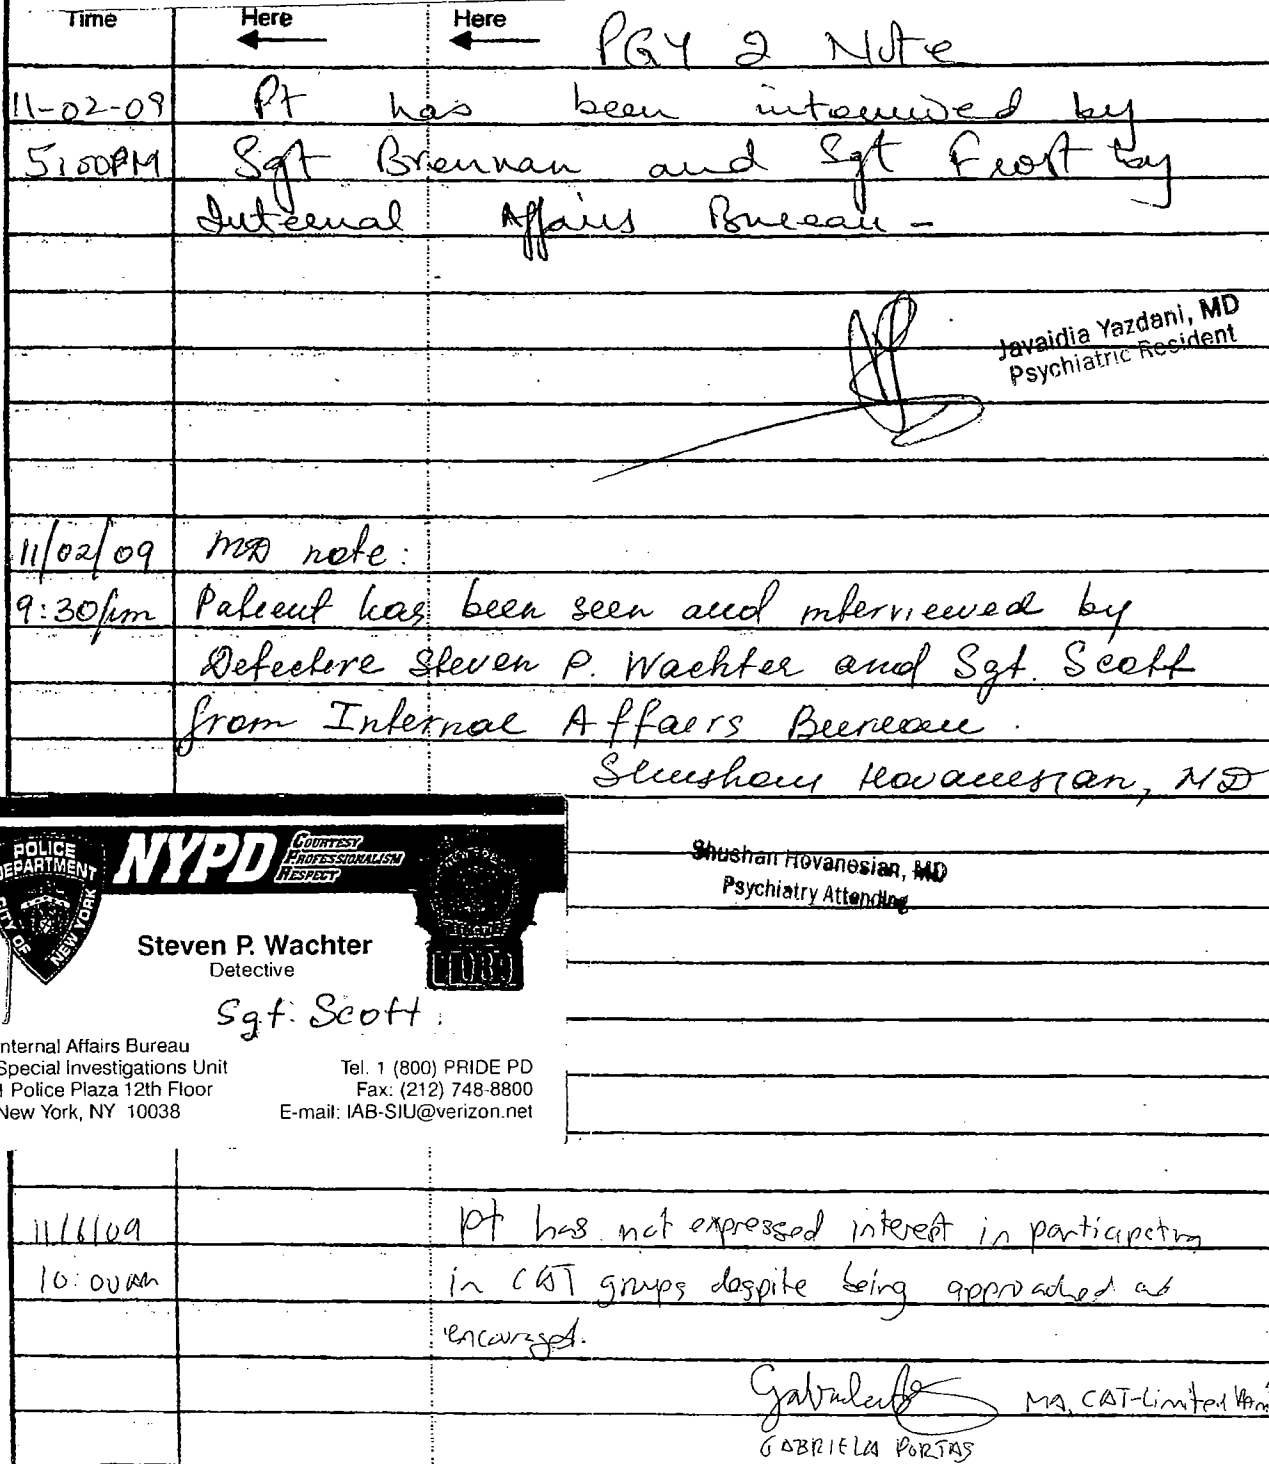 Time Here Here
PGY 2 Note
11-02-09 Pt has been interviewed by
5:00PM Sgt Brennan and Sgt Frost by
Internal Affairs Bureau -
Javaidia Yazdani, MD
Psychiatric Resident
11/02/09 MD note:
9:30pm Patient has been seen and interviewed by
Detective Steven P. Wachter and Sgt. Scott
from Internal Affairs Bureau.
Shushan Hovanesian, MD
Shushan Hovanesian, MD
Psychiatry Attending
POLICE
DEPARTMENT
CITY OF
NEW YORK
NYPD
COURTESY
PROFESSIONALISM
RESPECT
Steven P. Wachter
Detective
Sgt. Scott
nternal Affairs Bureau
Special Investigations Unit Tel. 1 (800) PRIDE PD
1 Police Plaza 12th Floor Fax: (212) 748-8800
New York, NY 10038 E-mail: IAB-SIU@verizon.net
11/6/09 pt has not expressed interest in participating
10:00AM in CAT groups despite being approached and
encouraged.
MA, CAT-Limited
GABRIELA PORTAS